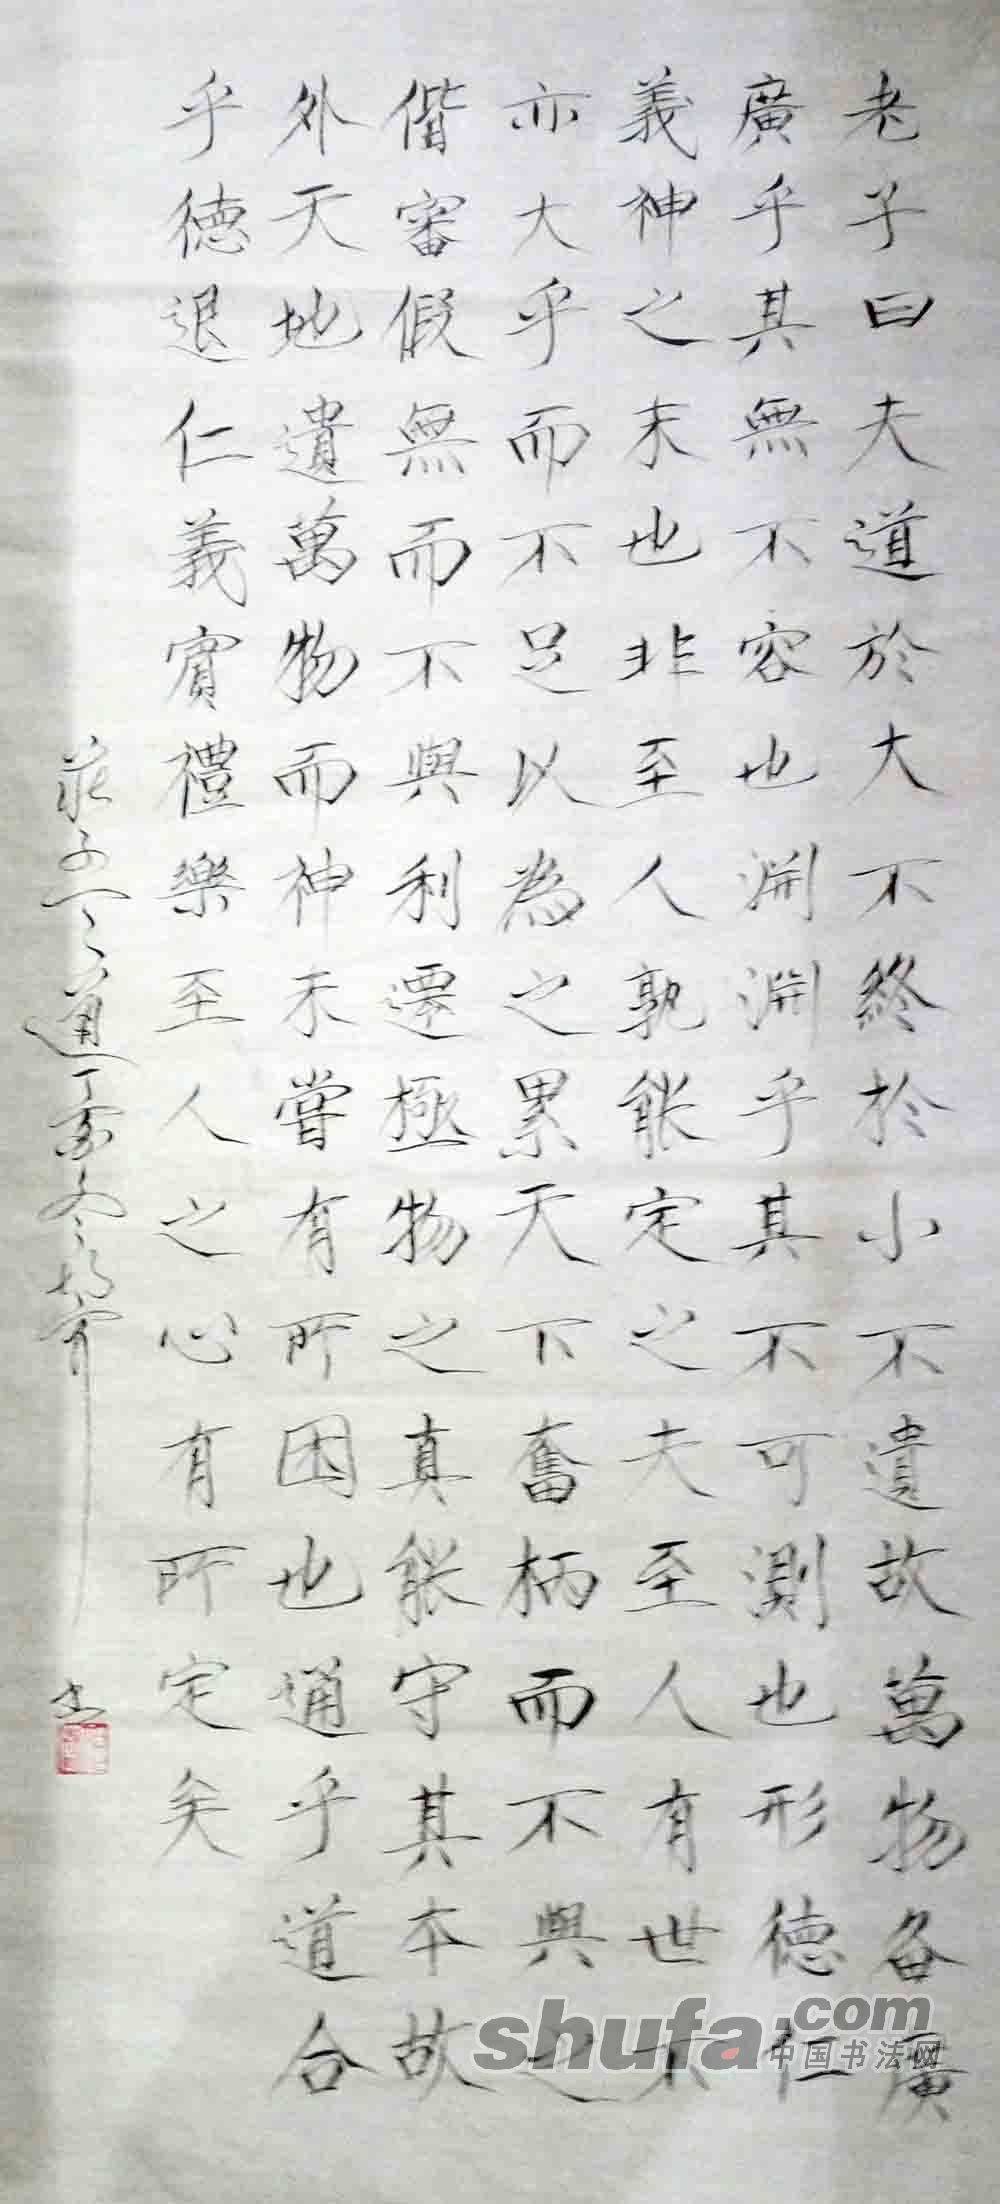 老子曰夫道於大不終於小不遺故萬物备廣
廣乎其無不容也淵淵乎其不可測也形德仁
義神之末也非至人孰能定之夫至人有世不
亦大乎而不足以為之累天下奮柄而不與之
偕審假無而不與利遷極物之真能守其本故
外天地遺萬物而神未嘗有所困也通乎道合
乎德退仁義賓禮樂至人之心有所定矣
莊子天道丁亥冬书
shufa.com
中国书法网